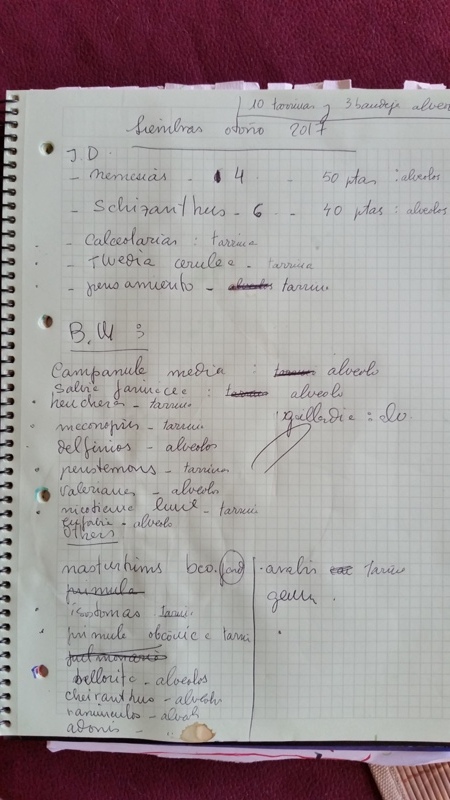 10 tarrinas y 3 bandeja alveo
Siembras otoño 2017
J.D.
- nemesias - 4 - 50 ptas : alveolos
- Schizanthus - 6 - - 40 ptas : alveolos
- Calceolarias : tarrina
- Twedia cerulee - tarrina
- pensamiento - alveolos tarrina
B.W :
Campanule media : alveolo
Salvia farinacee : alveolo
heuchera - tarrina
xgallardia : 20
meconopsis - tarrina
delfinios - alveolos
penstemons - tarrina
Valeriana - alveolo
nicotiana - tarrina
- alveolo
Others
nasturtiums bco.
primula
isostomas tarri
primule obconice tarri
pulmonaria
bellorita - alveolos
cheiranthus - alveolo
ranunculos - alveol
adonis -
. arabis tarrina